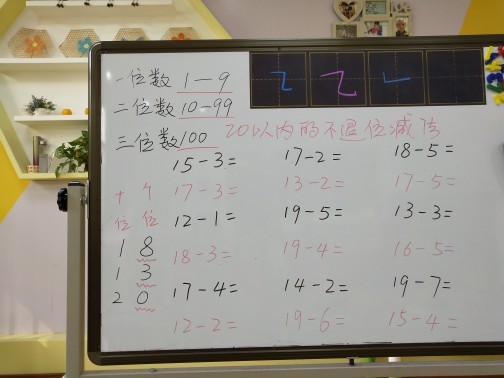 一位数 1—9
二位数 10—99
三位数 100
20以内的不退位减法
15-3= 17-2= 18-5=
17-3= 13-2= 17-5=
12-1= 19-5= 13-3=
18-3= 19-4= 16-5=
17-4= 14-2= 19-7=
12-2= 19-6= 15-4=
十 个
位 位
1 8
1 3
2 0